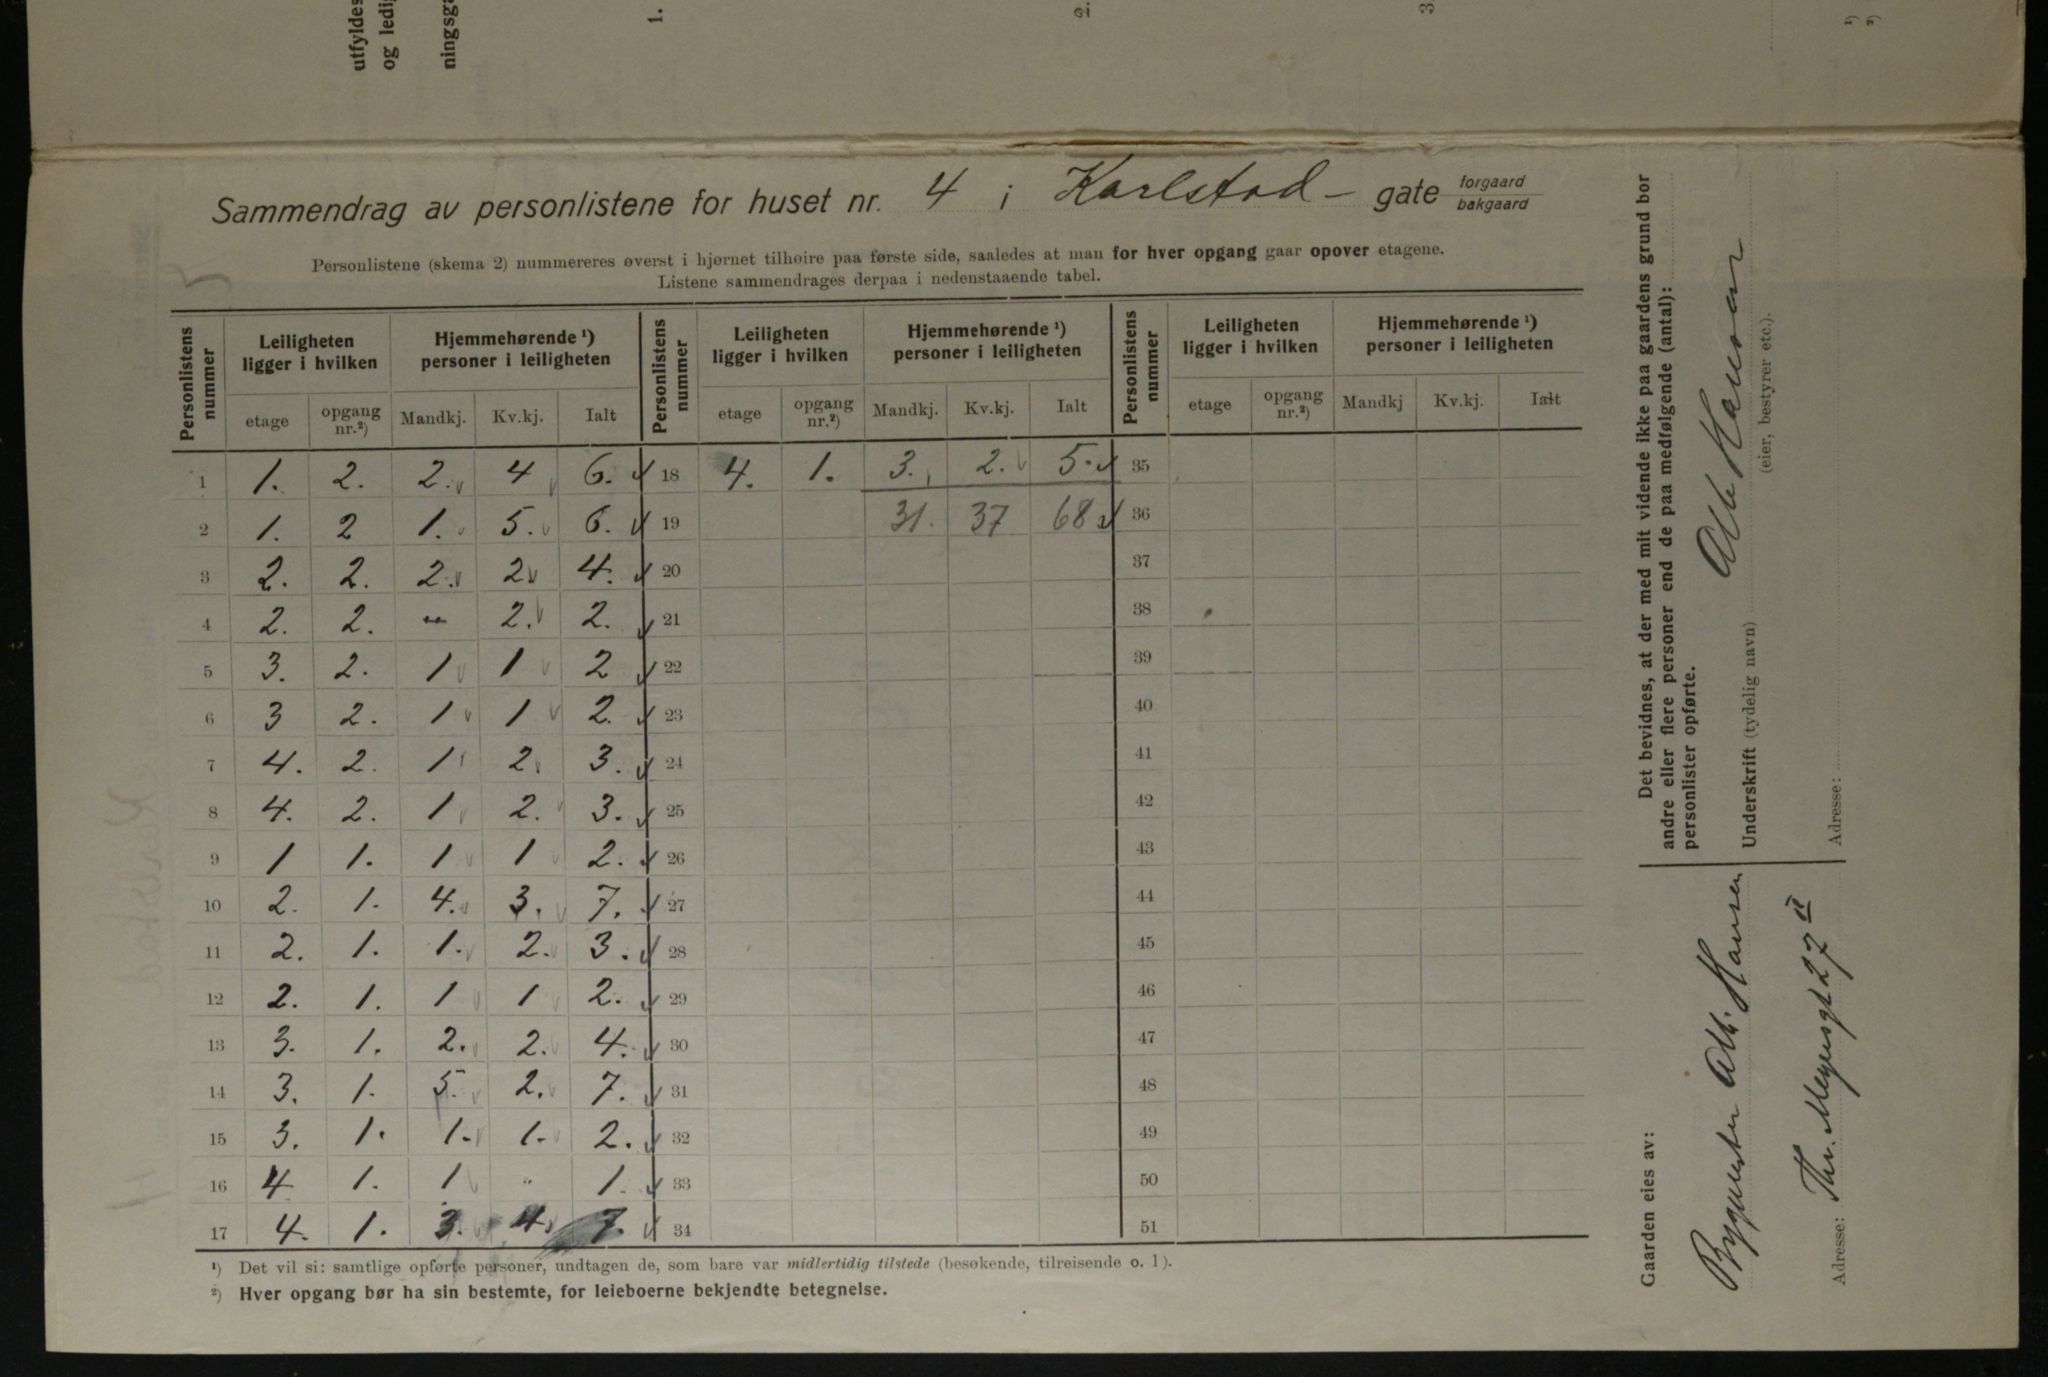 utfyldes
og ledig
ningsga
1.
2.
3.
¹)
²)
Sammendrag av personlistene for huset nr. 4 i Karlstad - gate forgaard bakgaard
Personlistene (skema 2) nummereres øverst i hjørnet tilhøire paa første side, saaledes at man for hver opgang gaar opover etagene.
Listene sammendrages derpaa i nedenstaaende tabel.
Personlistens nummer | Leiligheten ligger i hvilken | Hjemmehørende ¹) personer i leiligheten | Personlistens nummer | Leiligheten ligger i hvilken | Hjemmehørende ¹) personer i leiligheten | Personlistens nummer | Leiligheten ligger i hvilken | Hjemmehørende ¹) personer i leiligheten
etage | opgang nr.²) | Mandkj. | Kv.kj. | Ialt | etage | opgang nr.²) | Mandkj. | Kv.kj. | Ialt | etage | opgang nr.²) | Mandkj | Kv.kj. | Ialt
1 | 1. | 2. | 2. | 4 | 6. | 18 | 4. | 1. | 3. | 2. | 5. | 35
2 | 1. | 2 | 1. | 5. | 6. | 19 | 31. | 37 | 68 | 36
3 | 2. | 2. | 2. | 2. | 4. | 20 | 37
4 | 2. | 2. | - | 2. | 2. | 21 | 38
5 | 3. | 2. | 1 | 1 | 2 | 22 | 39
6 | 3 | 2. | 1 | 1 | 2. | 23 | 40
7 | 4. | 2. | 1 | 2. | 3. | 24 | 41
8 | 4. | 2. | 1 | 2. | 3. | 25 | 42
9 | 1 | 1. | 1 | 1 | 2. | 26 | 43
10 | 2. | 1. | 4. | 3. | 7. | 27 | 44
11 | 2. | 1. | 1. | 2. | 3. | 28 | 45
12 | 2. | 1. | 1 | 1 | 2. | 29 | 46
13 | 3. | 1. | 2. | 2. | 4. | 30 | 47
14 | 3. | 1. | 5. | 2. | 7. | 31 | 48
15 | 3. | 1. | 1. | 1. | 2. | 32 | 49
16 | 4 | 1. | 1 | " | 1. | 33 | 50
17 | 4. | 1. | 3. | 4. | 7. | 34 | 51
¹) Det vil si: samtlige opførte personer, undtagen de, som bare var midlertidig tilstede (besøkende, tilreisende o. l).
²) Hver opgang bør ha sin bestemte, for leieboerne bekjendte betegnelse.
Det bevidnes, at der med mit vidende ikke paa gaardens grund bor
andre eller flere personer end de paa medfølgende (antal):
personlister opførte.
Underskrift (tydelig navn) Alb Hansen
(eier, bestyrer etc.).
Adresse:
Gaarden eies av:
Byggmester Alb. Hansen
Adresse: Thv. Meyersgt 27 II